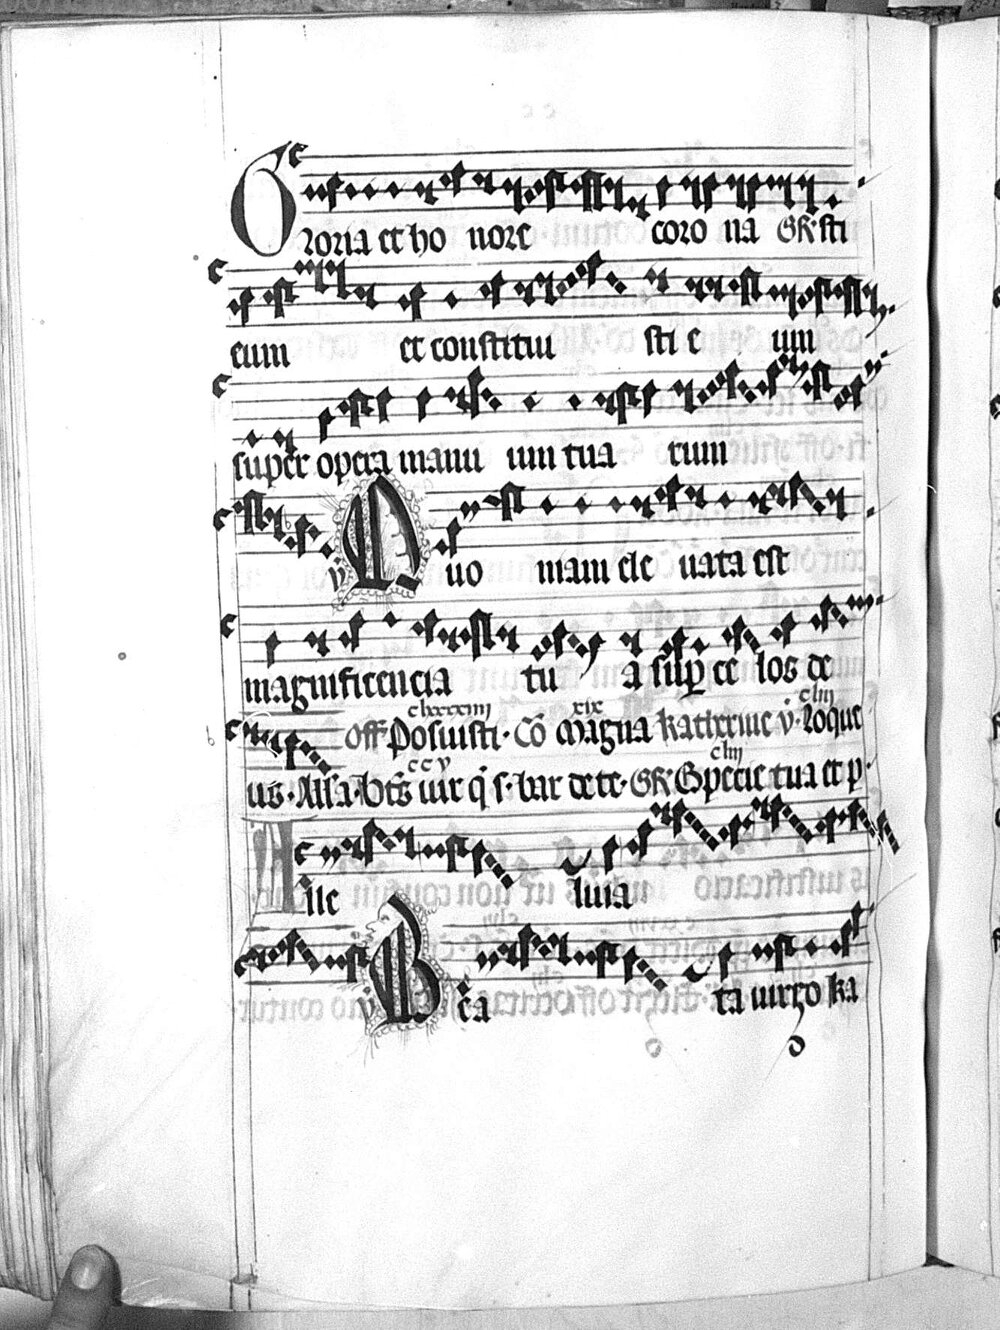 Gloria et ho nore coro na GR sti
eum et constitui sti e um
super opera manu um tua rum
℣ Quo niam ele uata est
magnificencia tu a sup ce los de
clxxxxiiij xix cliij
us off Posuisti · Cō Magna katherine ℣ · Loque
ccv cliij
Alla · bt̄s uir q̄ s · bar dete · GR Specie tua et p ·
Alle luia
℣ Bea ta uirgo ka